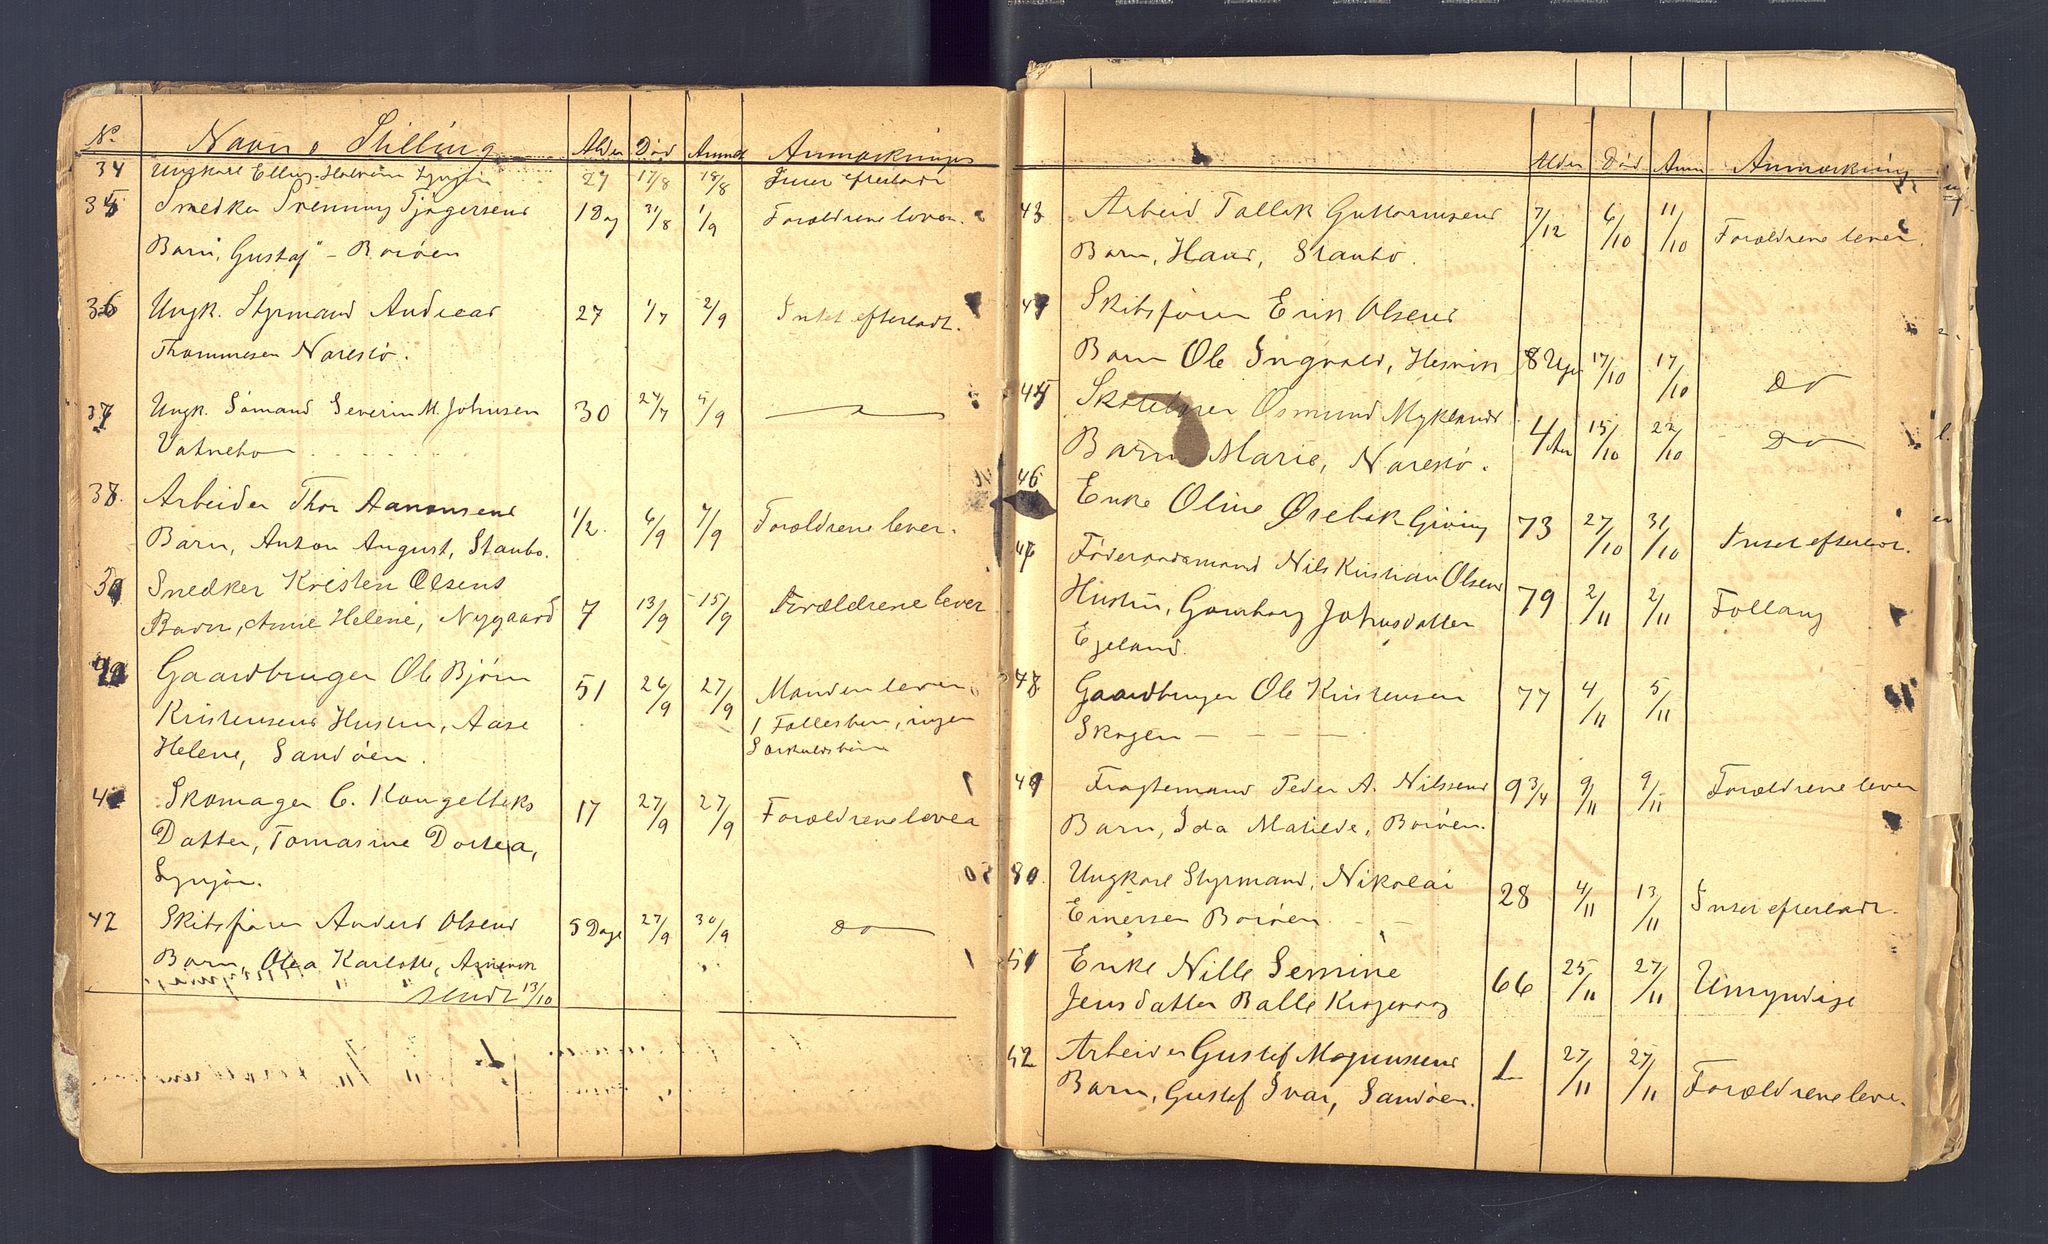 No. Navn o Stilling Alder Død Anm Anmærkninger
34 Ungkarl 27 17/8 18/8 Intet efterladt
35 Smedker Trenning Tjøgersens 1 Dag 31/8 1/9 Forældrene lever.
Barn, Gustaf" - Borøen
36 Ungk. Styrmand Andreas 27 1/7 2/9 Intet efterladt.
Thommesen Narestø.
37 Ungk. Sømand Severin M. Johnsen 30 24/7 5/9
Vatnebo
38. Arbeider Thor Aanonsens 1/2 6/9 7/9 Forældrene lever.
Barn, Anton August, Staubo.
39 Snedker Kristen Olsens
Barn, Anne Helene, Nygaard 7 13/9 15/9 Forældrene lever
40 Gaardbruger Ole Bjørn 51 26/9 27/9 Manden lever
Kristensens Hustru, Aase 1 Fællesbarn, ingen
Helene, Sandøen. Særkuldsbørn
4 Skomager C. Kongelbeks 17 27/9 27/9 Forældrene lever
Datter, Tomasine Dortea,
Lyngør.
42 Skibsfører Anders Olsens 5 Dage 27/9 30/9 Do
Barn, Olea Karlotte,
sendt 13/10
Alder Død Anm Anmærkning
43 Arbeid Tallak Guttormsens 7/12 6/10 11/10 Forældrene lever.
Barn, Hans, Staubo.
44 Skibsfører Erik Olsens
Barn Ole Ingvald, Hesvik 8 Uger 17/10 17/10 Do
45 Osmund Myklands
Barn Marie, Narestø. 4 Aar 15/10 22/10 Do
46 Enke Oline Ørebek Giving 73 27/10 31/10 Intet efterladt.
47 Føderaadsmand Nils Kristian Olsens
Hustru, Gunborg Johnsdatter 79 2/11 2/11 Follaug
Ejeland.
48 Gaardbruger Ole Kristensen 77 4/11 5/11
Skogen - - - -
49 Fragtemand Peder A. Nilssens 9 3/4 9/11 9/11 Forældrene lever
Barn, Ida Matilde, Borøen.
50. Ungkarl Styrmand, Nikolai 28 4/11 13/11 Intet efterladt.
Einersen Borøen - -
51 Enke Nille Semine 66 25/11 27/11 Umyndige
Jensdatter Balle Krogevaag
52 Arbeider Gustaf Magnussens 1 27/11 27/11 Forældrene lever.
Barn, Gustaf Ivar, Sandøen.